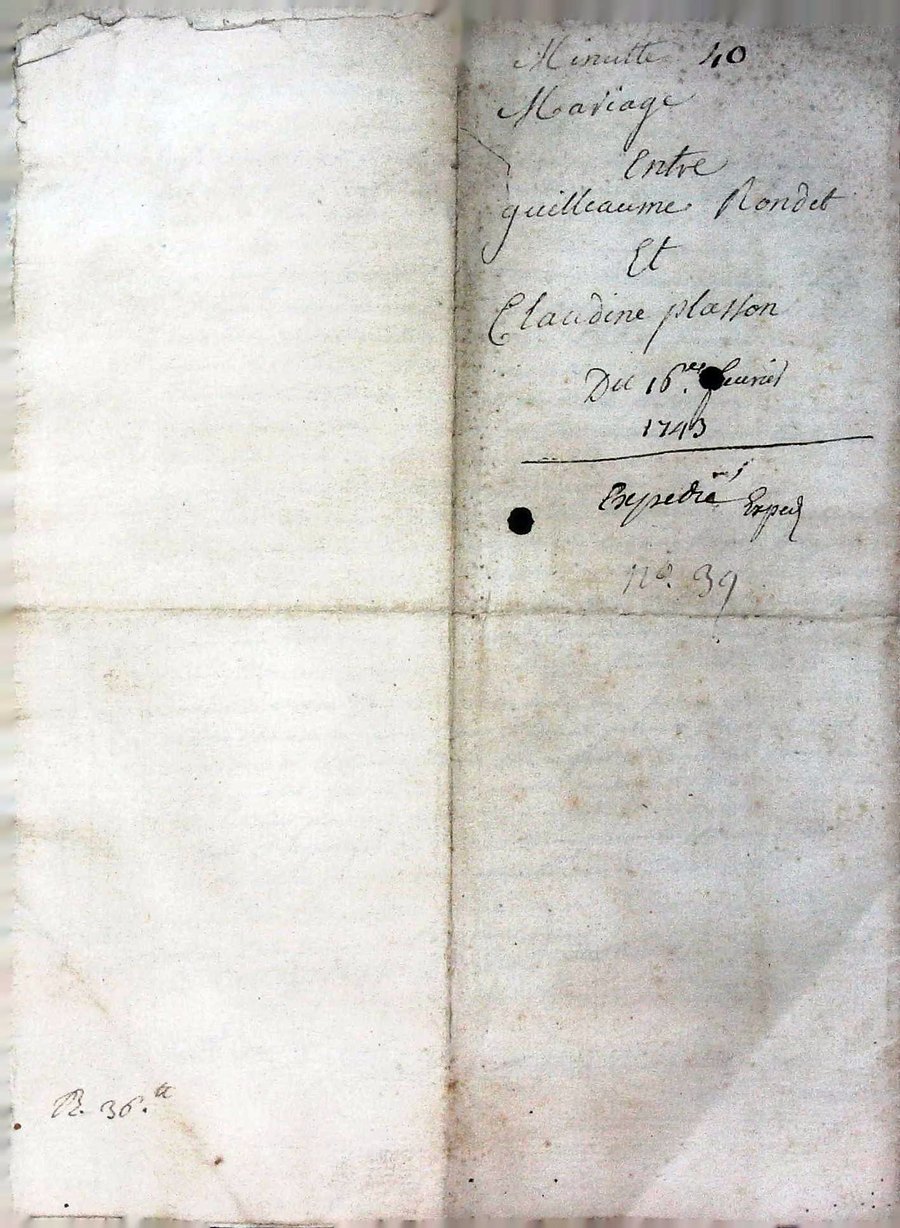 Minutte 40
Mariage
Entre
guilleaume Rondet
Et
Claudine plasson
Du 16.
1743
Expedié Exped
no. 39
R. 36.tt